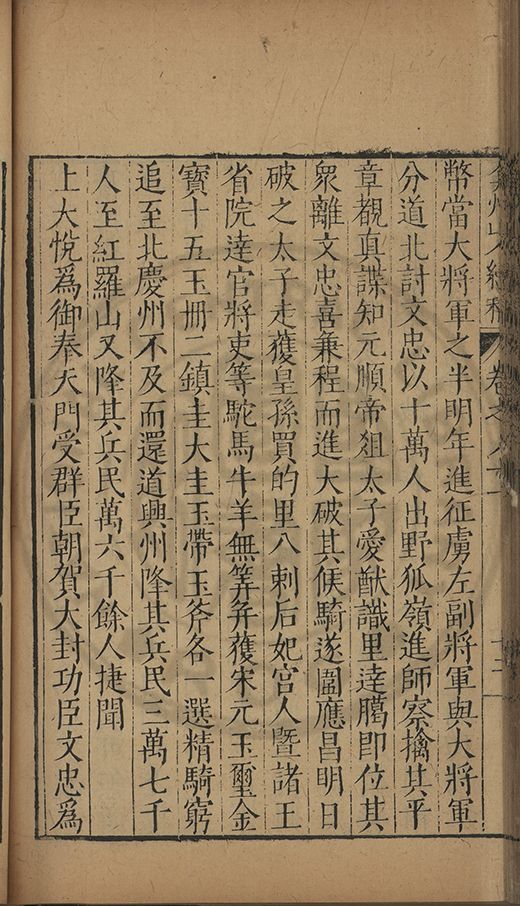 幣當大將軍之半明年進征虜左副將軍與大將軍
分道北討文忠以十萬人出野狐嶺進師察擒其平
章覩真諜知元順帝殂太子愛猷識里達臈即位其
衆離文忠喜兼程而進大破其候騎遂圍應昌明日
破之太子走獲皇孫買的里八剌后妃宫人暨諸王
省院達官將吏等駝馬牛羊無筭并獲宋元玉璽金
寳十五玉册二鎮圭大圭玉帶玉斧各一選精騎窮
追至北慶州不及而還道興州降其兵民三萬七千
人至紅羅山又降其兵民萬六千餘人捷聞
上大悅爲御奉天門受群臣朝賀大封功臣文忠爲